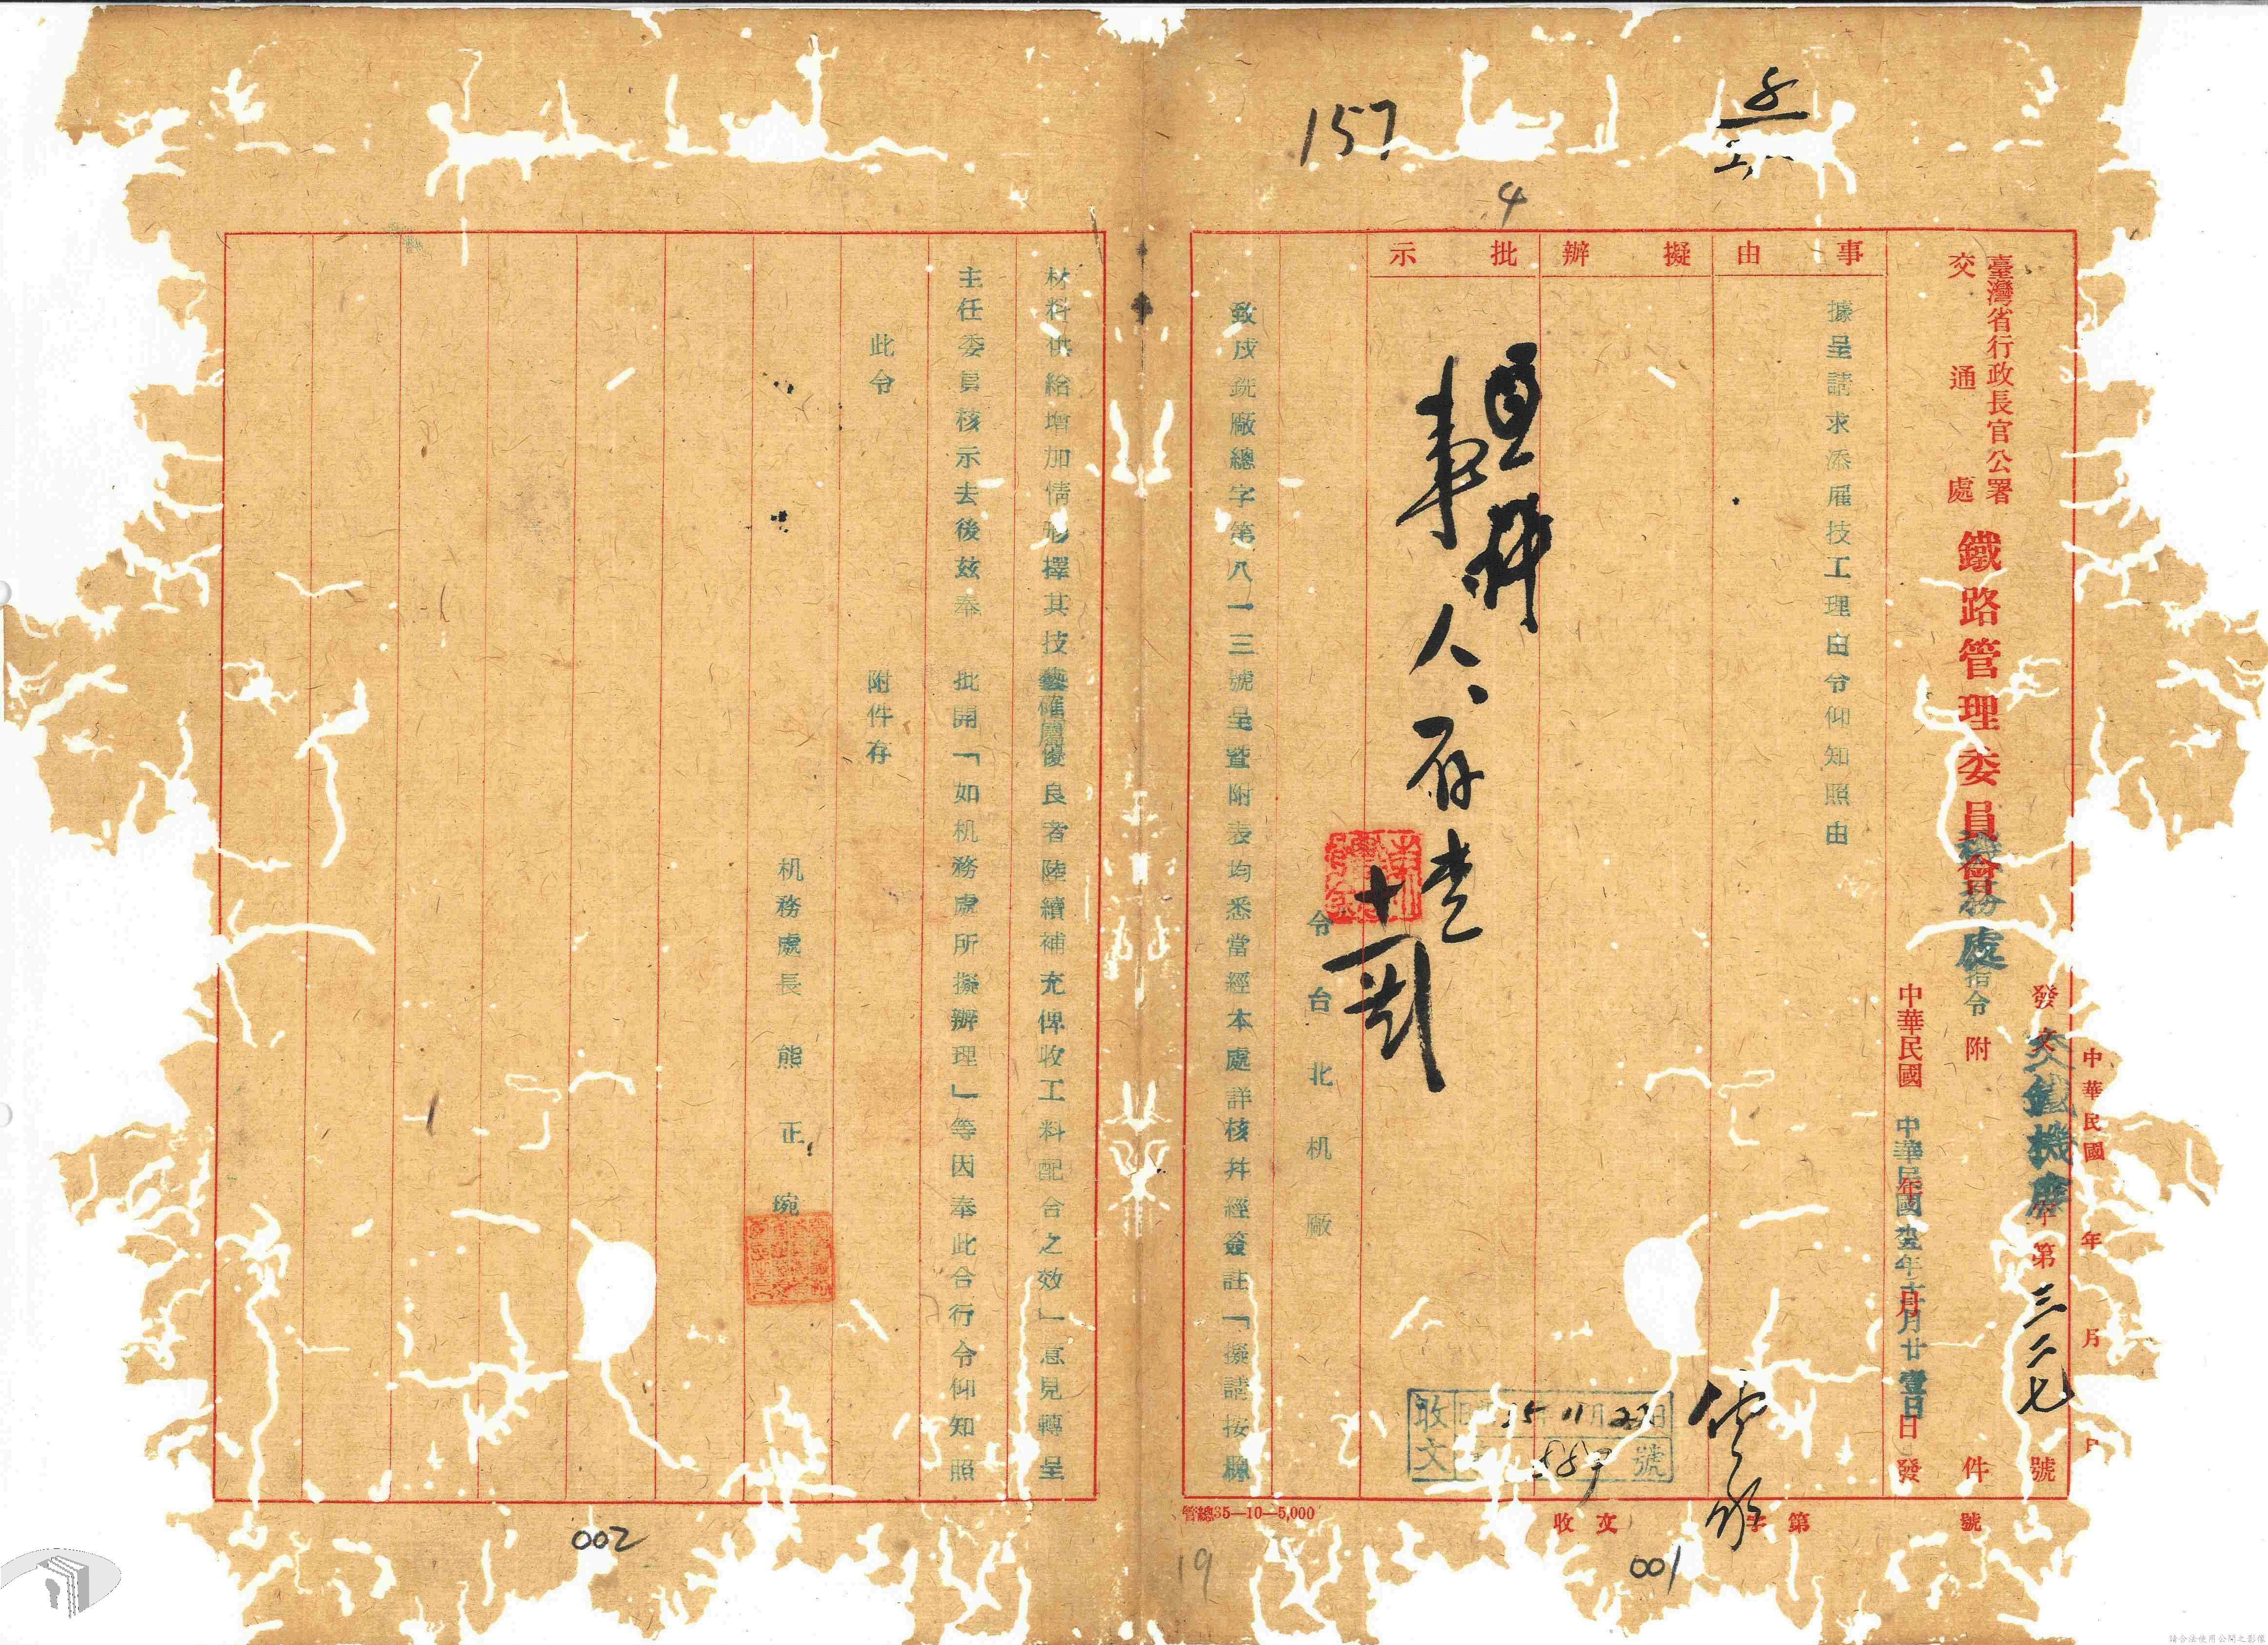 157
4
臺灣省行政長官公署
交通處
鐵路管理委員會
機務處
指令
附
件
發文
交鐵機廠
字第三二七號
中華民國
年
月
中華民國
年
月
日發
中華民國卅五年十一月廿壹日
事由
擬辦
批示
據呈請求添雇技工理由令仰知照由
事
人
存查
十
令台北机廠
致戌銑廠總字第八一三號呈暨附表均悉當經本處詳核并經簽註「擬請按照
材料供給增加情形擇其技藝確屬優良者陸續補充俾收工料配合之效」意見轉呈
主任委員核示去後茲奉 批開「如机務處所擬辦理」等因奉此合行令仰知照
此令
附件存
机務處長熊正琬
收文
35年11月22日
號
收文
字第
號
管總35—10—5,000
19
001
002
請合法使用公開之影像